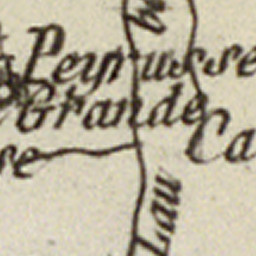 Peyrusse
Grande
Ca
se
Lau